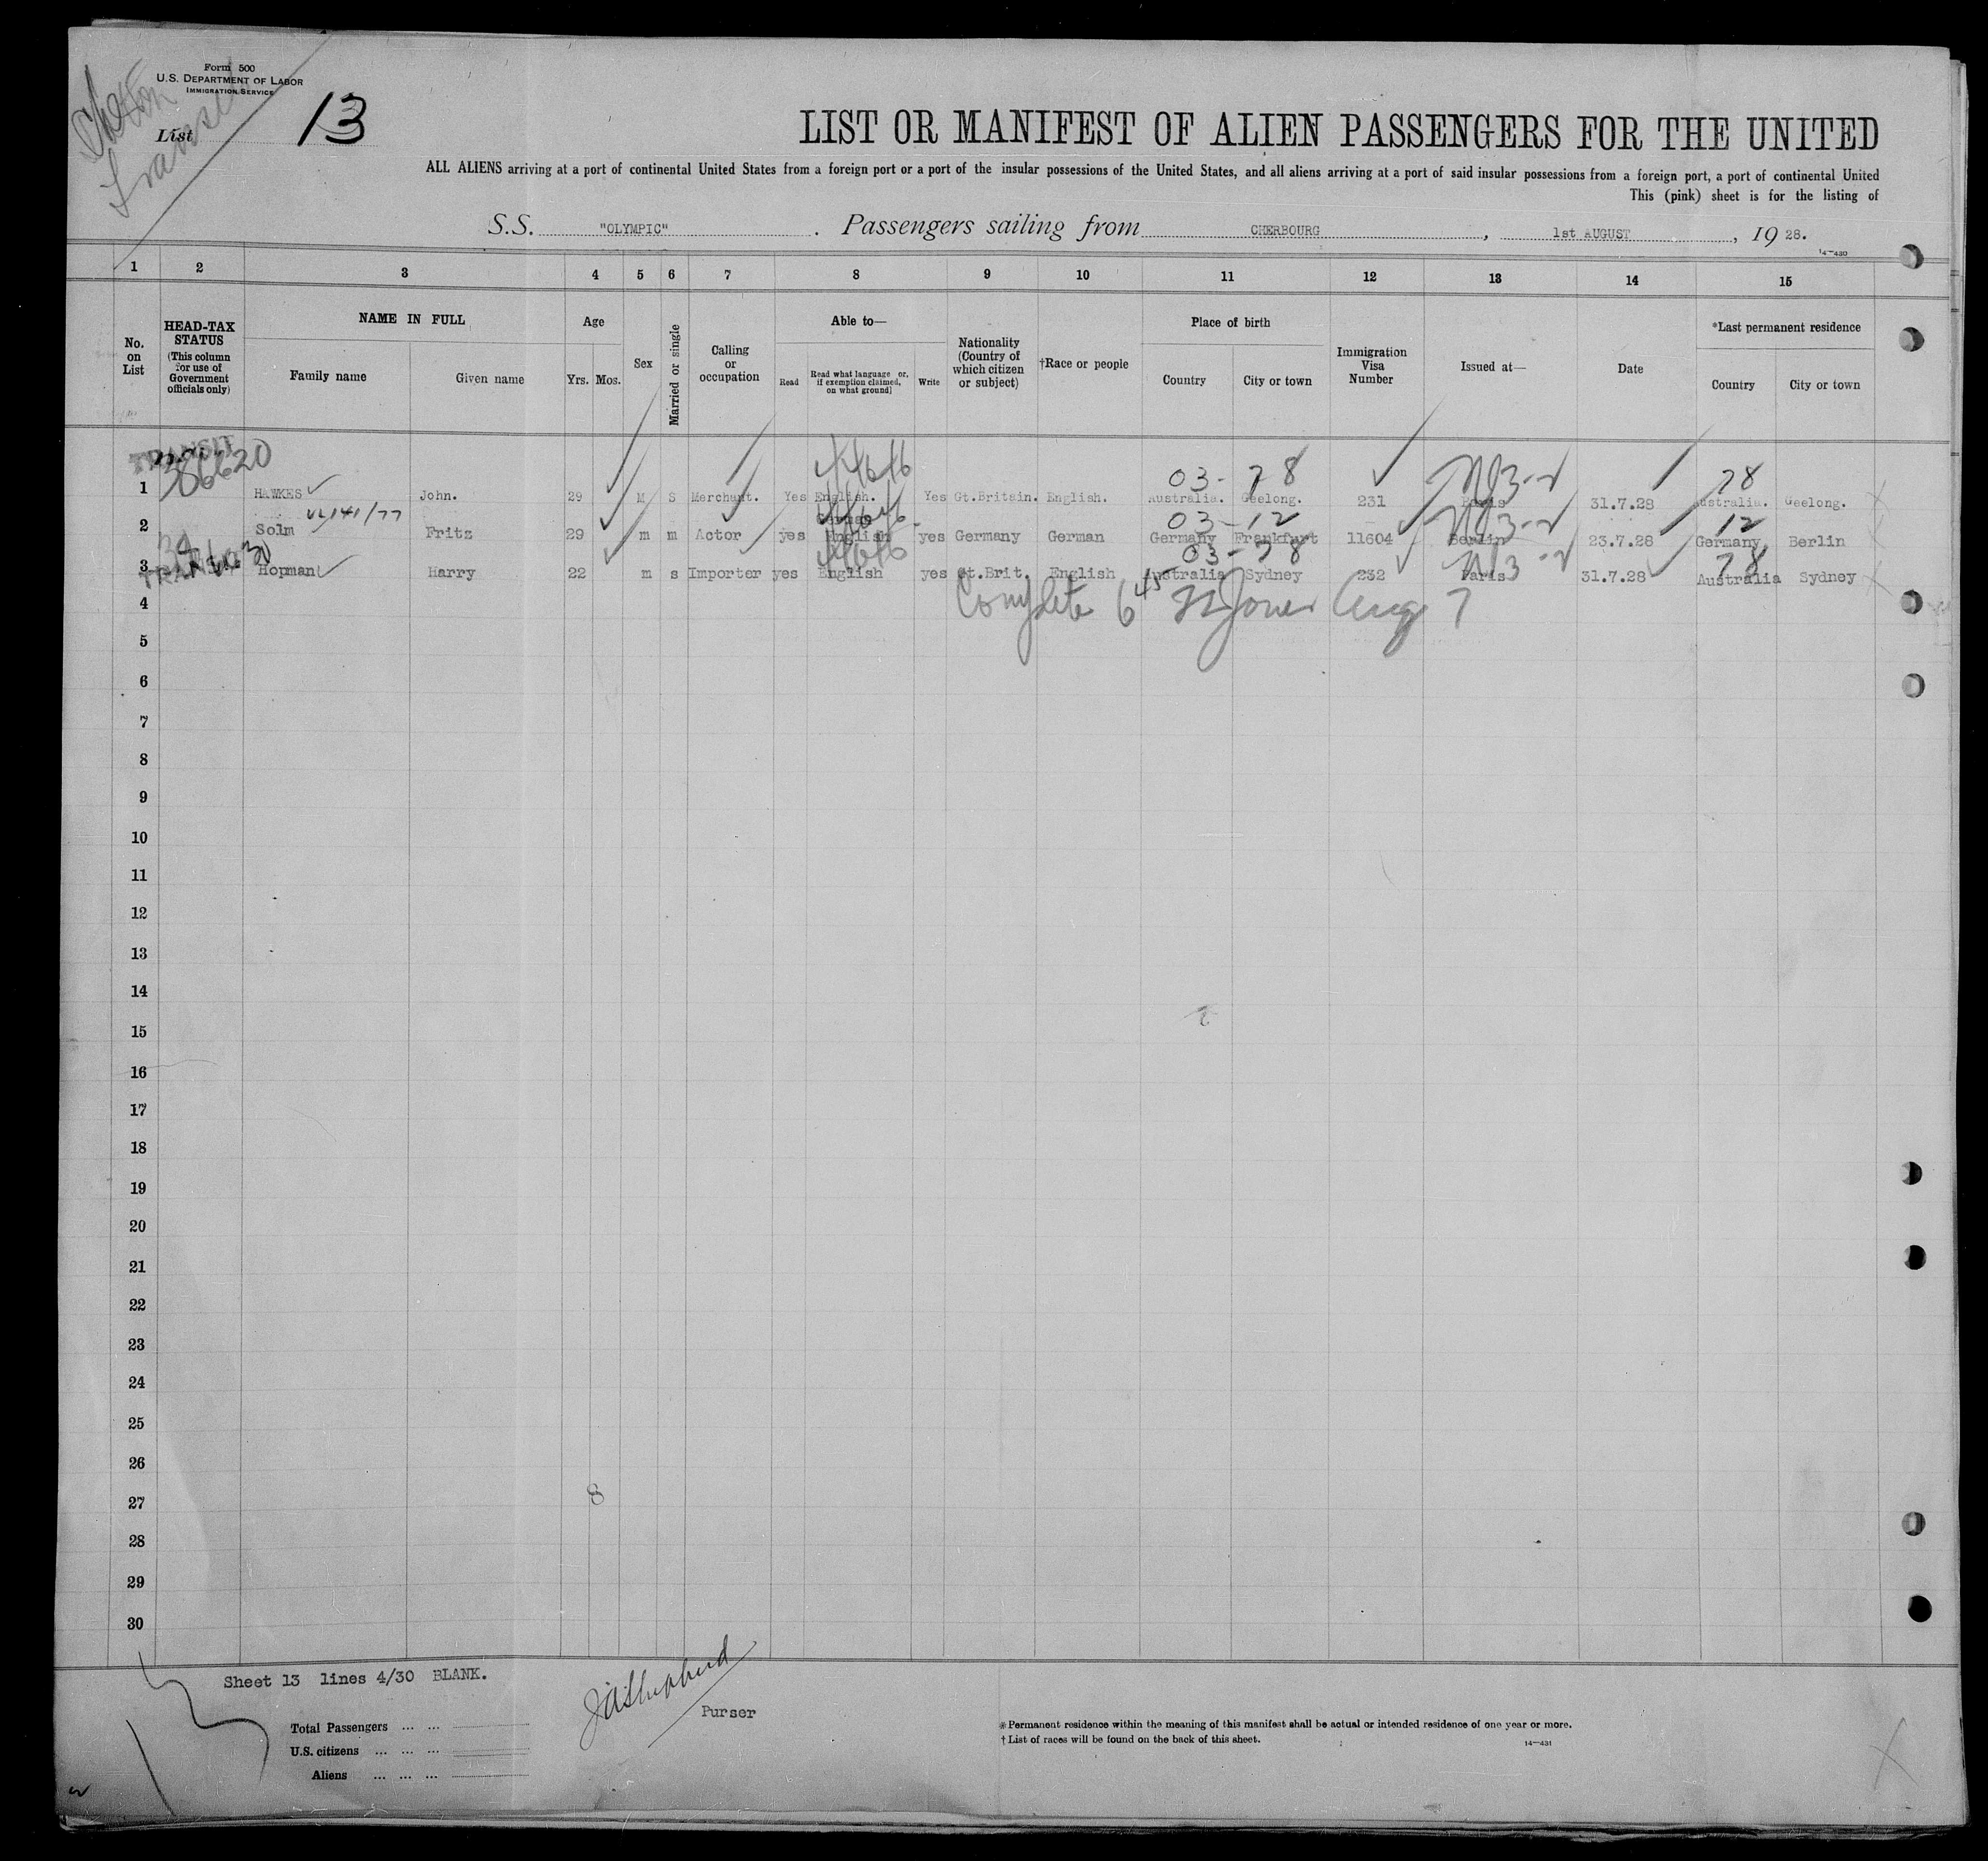 Form 500
U.S. DEPARTMENT OF LABOR
IMMIGRATION SERVICE
List 13
LIST OR MANIFEST OF ALIEN PASSENGERS FOR THE UNITED
ALL ALIENS arriving at a port of continental United States from a foreign port or a port of the insular possessions of the United States, and all aliens arriving at a port of said insular possessions from a foreign port, a port of continental United
This (pink) sheet is for the listing of
S.S. "OLYMPIC". Passengers sailing from CHERBOURG, 1st AUGUST, 19 28.
14-430
1 2 3 4 5 6 7 8 9 10 11 12 13 14 15
No. on List
HEAD-TAX STATUS (This column for use of Government officials only)
NAME IN FULL
Family name Given name
Age
Yrs. Mos.
Sex
Married or single
Calling or occupation
Able to—
Read Read what language or, if exemption claimed, on what ground] Write
Nationality (Country of which citizen or subject)
†Race or people
Place of birth
Country City or town
Immigration Visa Number
Issued at—
Date
*Last permanent residence
Country City or town
TRANSIT
386620
03-78 78
1 HAWKES John. 29 M S Merchant. Yes English. Yes Gt.Britain. English. Australia. Geelong. 231 Paris 31.7.28 Australia. Geelong.
German
03-12 12
2 Solm Fritz 29 m m Actor yes English yes Germany German Germany Frankfurt 11604 Berlin 23.7.28 Germany Berlin
TRANSIT
03-78 78
3 Hopman Harry 22 m s Importer yes English yes Gt.Brit. English Australia Sydney 232 Paris 31.7.28 Australia Sydney
4 Complete 6 45 Jones Aug 7
5
6
7
8
9
10
11
12
13
14
15
16
17
18
19
20
21
22
23
24
25
26
27 8
28
29
30
Sheet 13 lines 4/30 BLANK.
Purser
Total Passengers ... ...
U.S. citizens ... ... ...
Aliens ... ... ...
* Permanent residence within the meaning of this manifest shall be actual or intended residence of one year or more.
† List of races will be found on the back of this sheet.
14-431